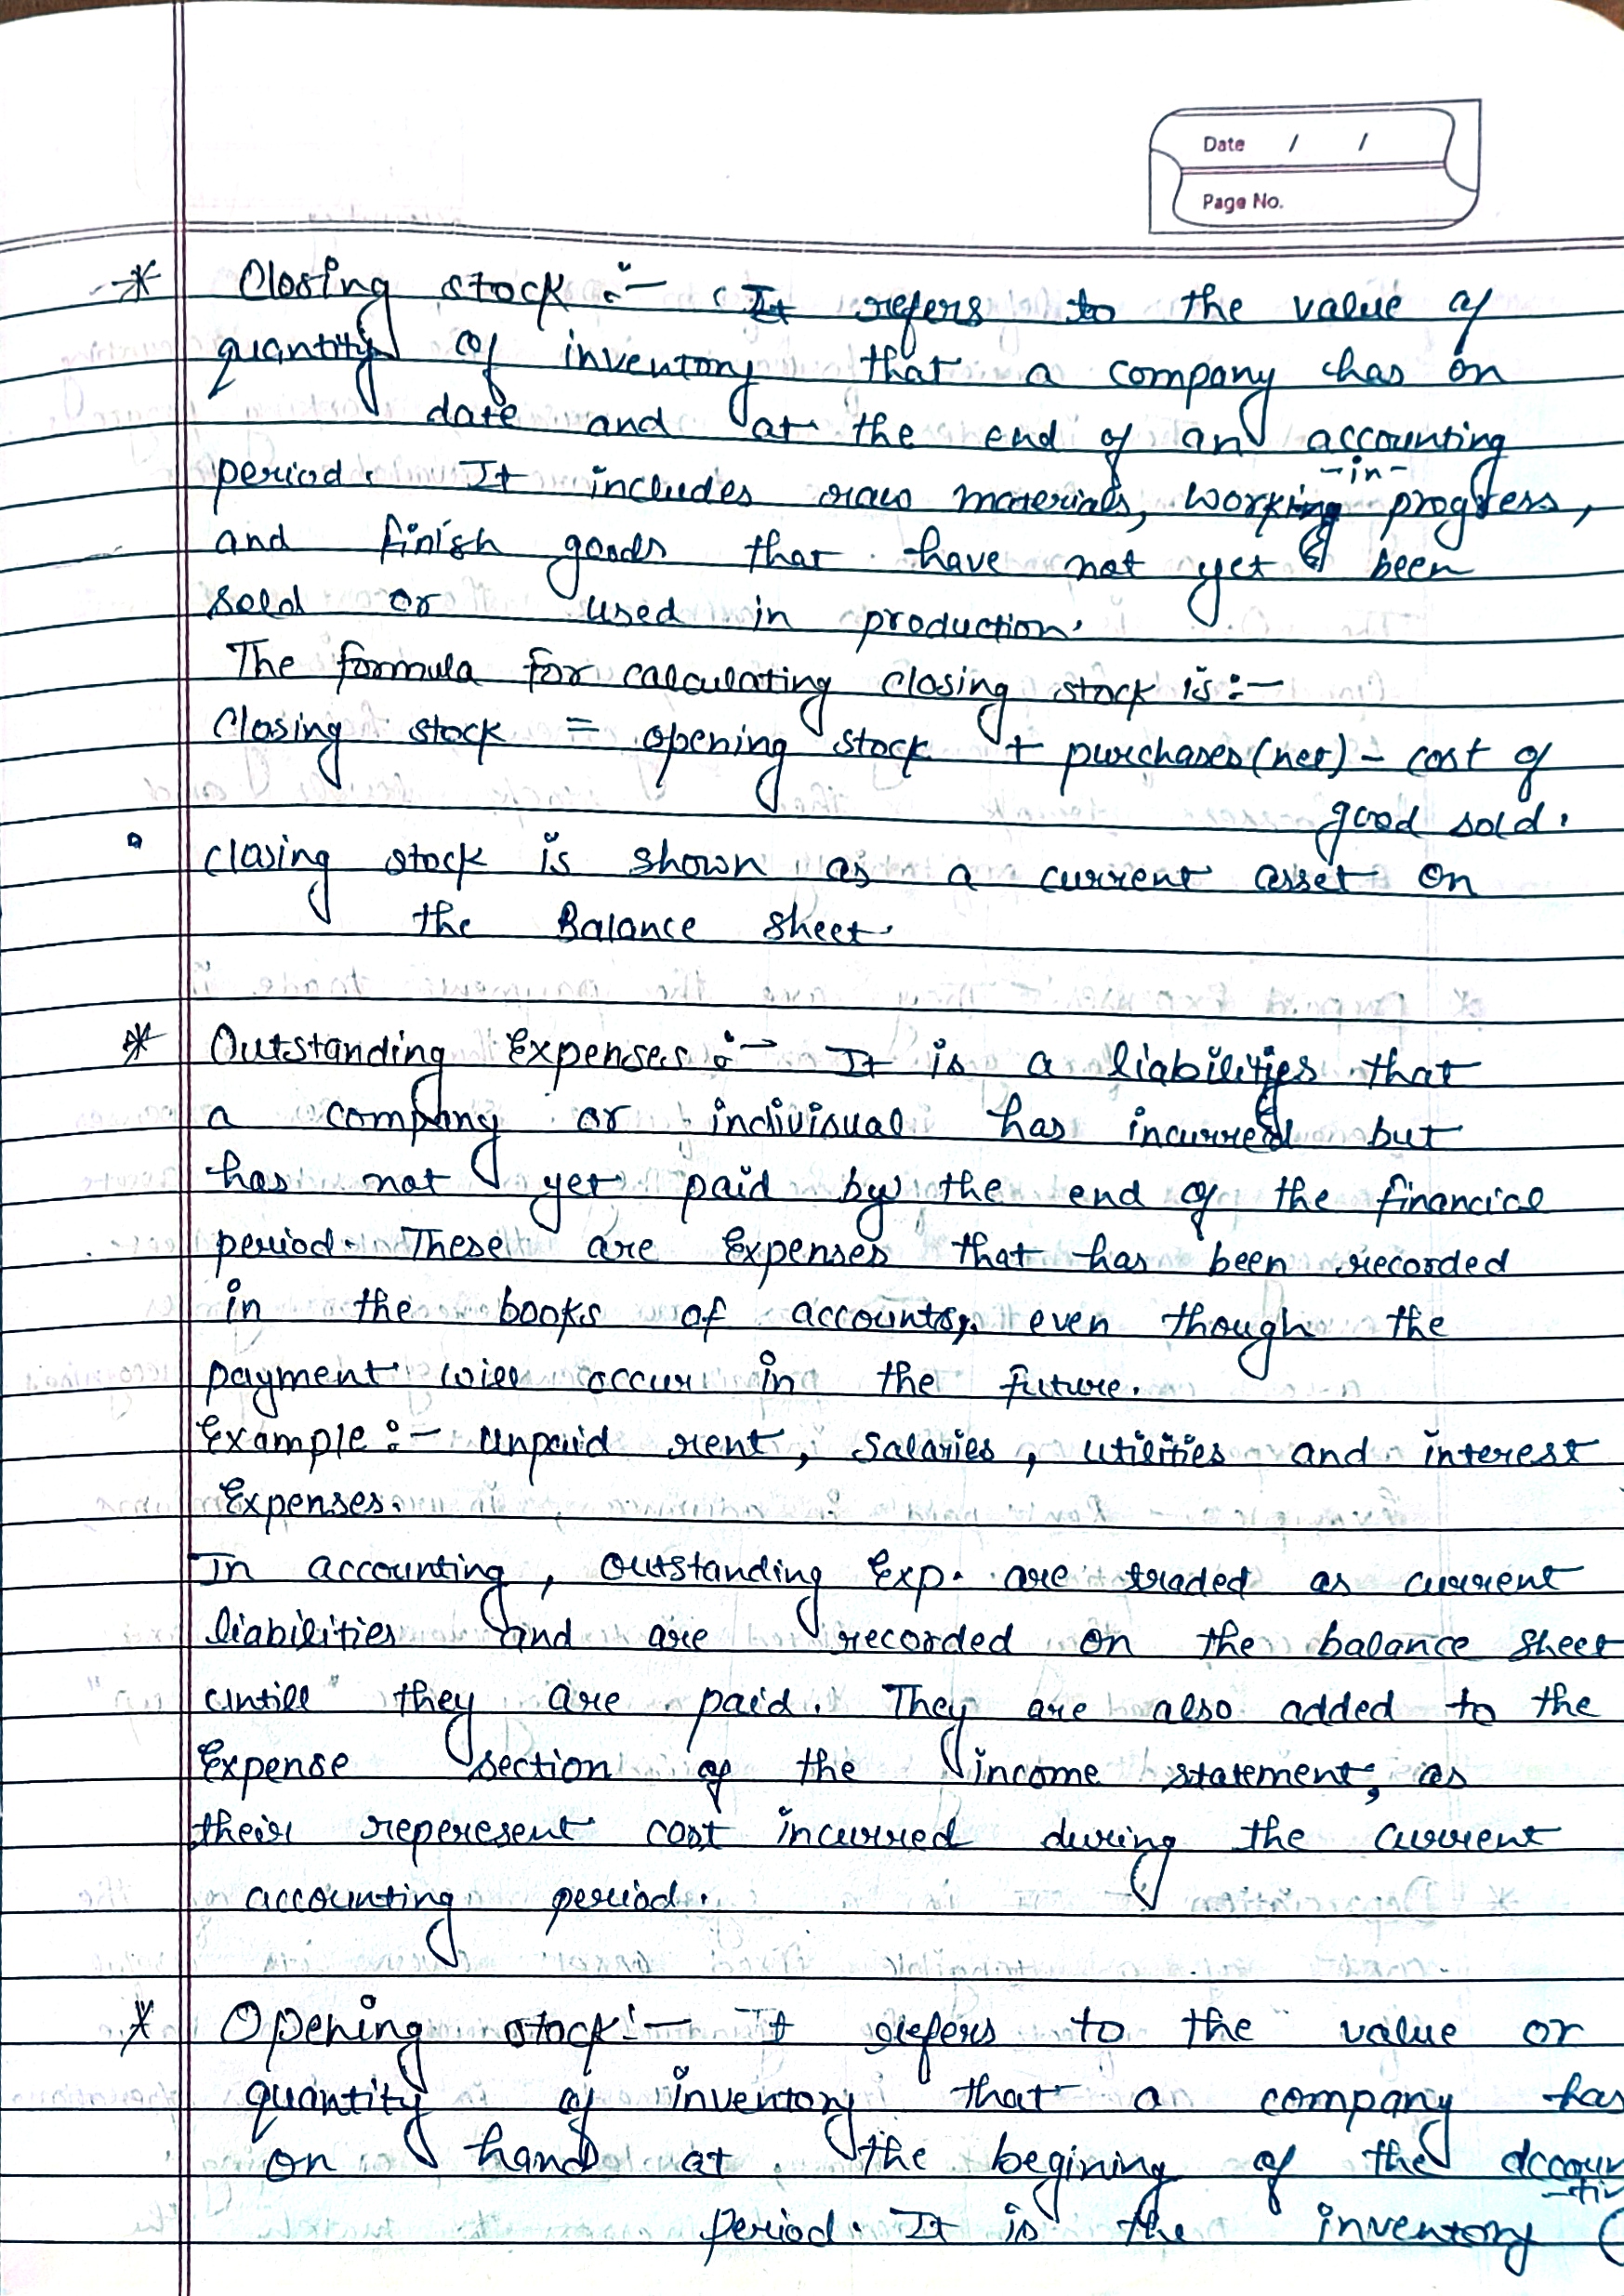 Date / /
Page No.
* Closing stock :- It refers to the value of
quantity of inventory that a company has on
date and at the end of an accounting
period. It includes raw materials, working -in- progress,
and finish goods that have not yet been
sold or used in production.
The formula for calculating closing stock is :-
Closing stock = opening stock + purchases (net) - cost of
good sold.
• closing stock is shown as a current asset on
the Balance sheet.
* Outstanding Expenses :- It is a liabilities that
a company or indivisual has incurred but
has not yet paid by the end of the financial
period. These are Expenses that has been recorded
in the books of accounts, even though the
payment will occur in the future.
Example :- unpaid rent, salaries, utilities and interest
Expenses.
In accounting, outstanding Exp. are traded as current
liabilities and are recorded on the balance sheet
untill they are paid. They are also added to the
Expense section of the income statement, as
their reperesent cost incurred during the current
accounting period.
* Opening stock :- It refers to the value or
quantity of inventory that a company has
on hand at the begining of the accoun
-tin
period. It is the inventory